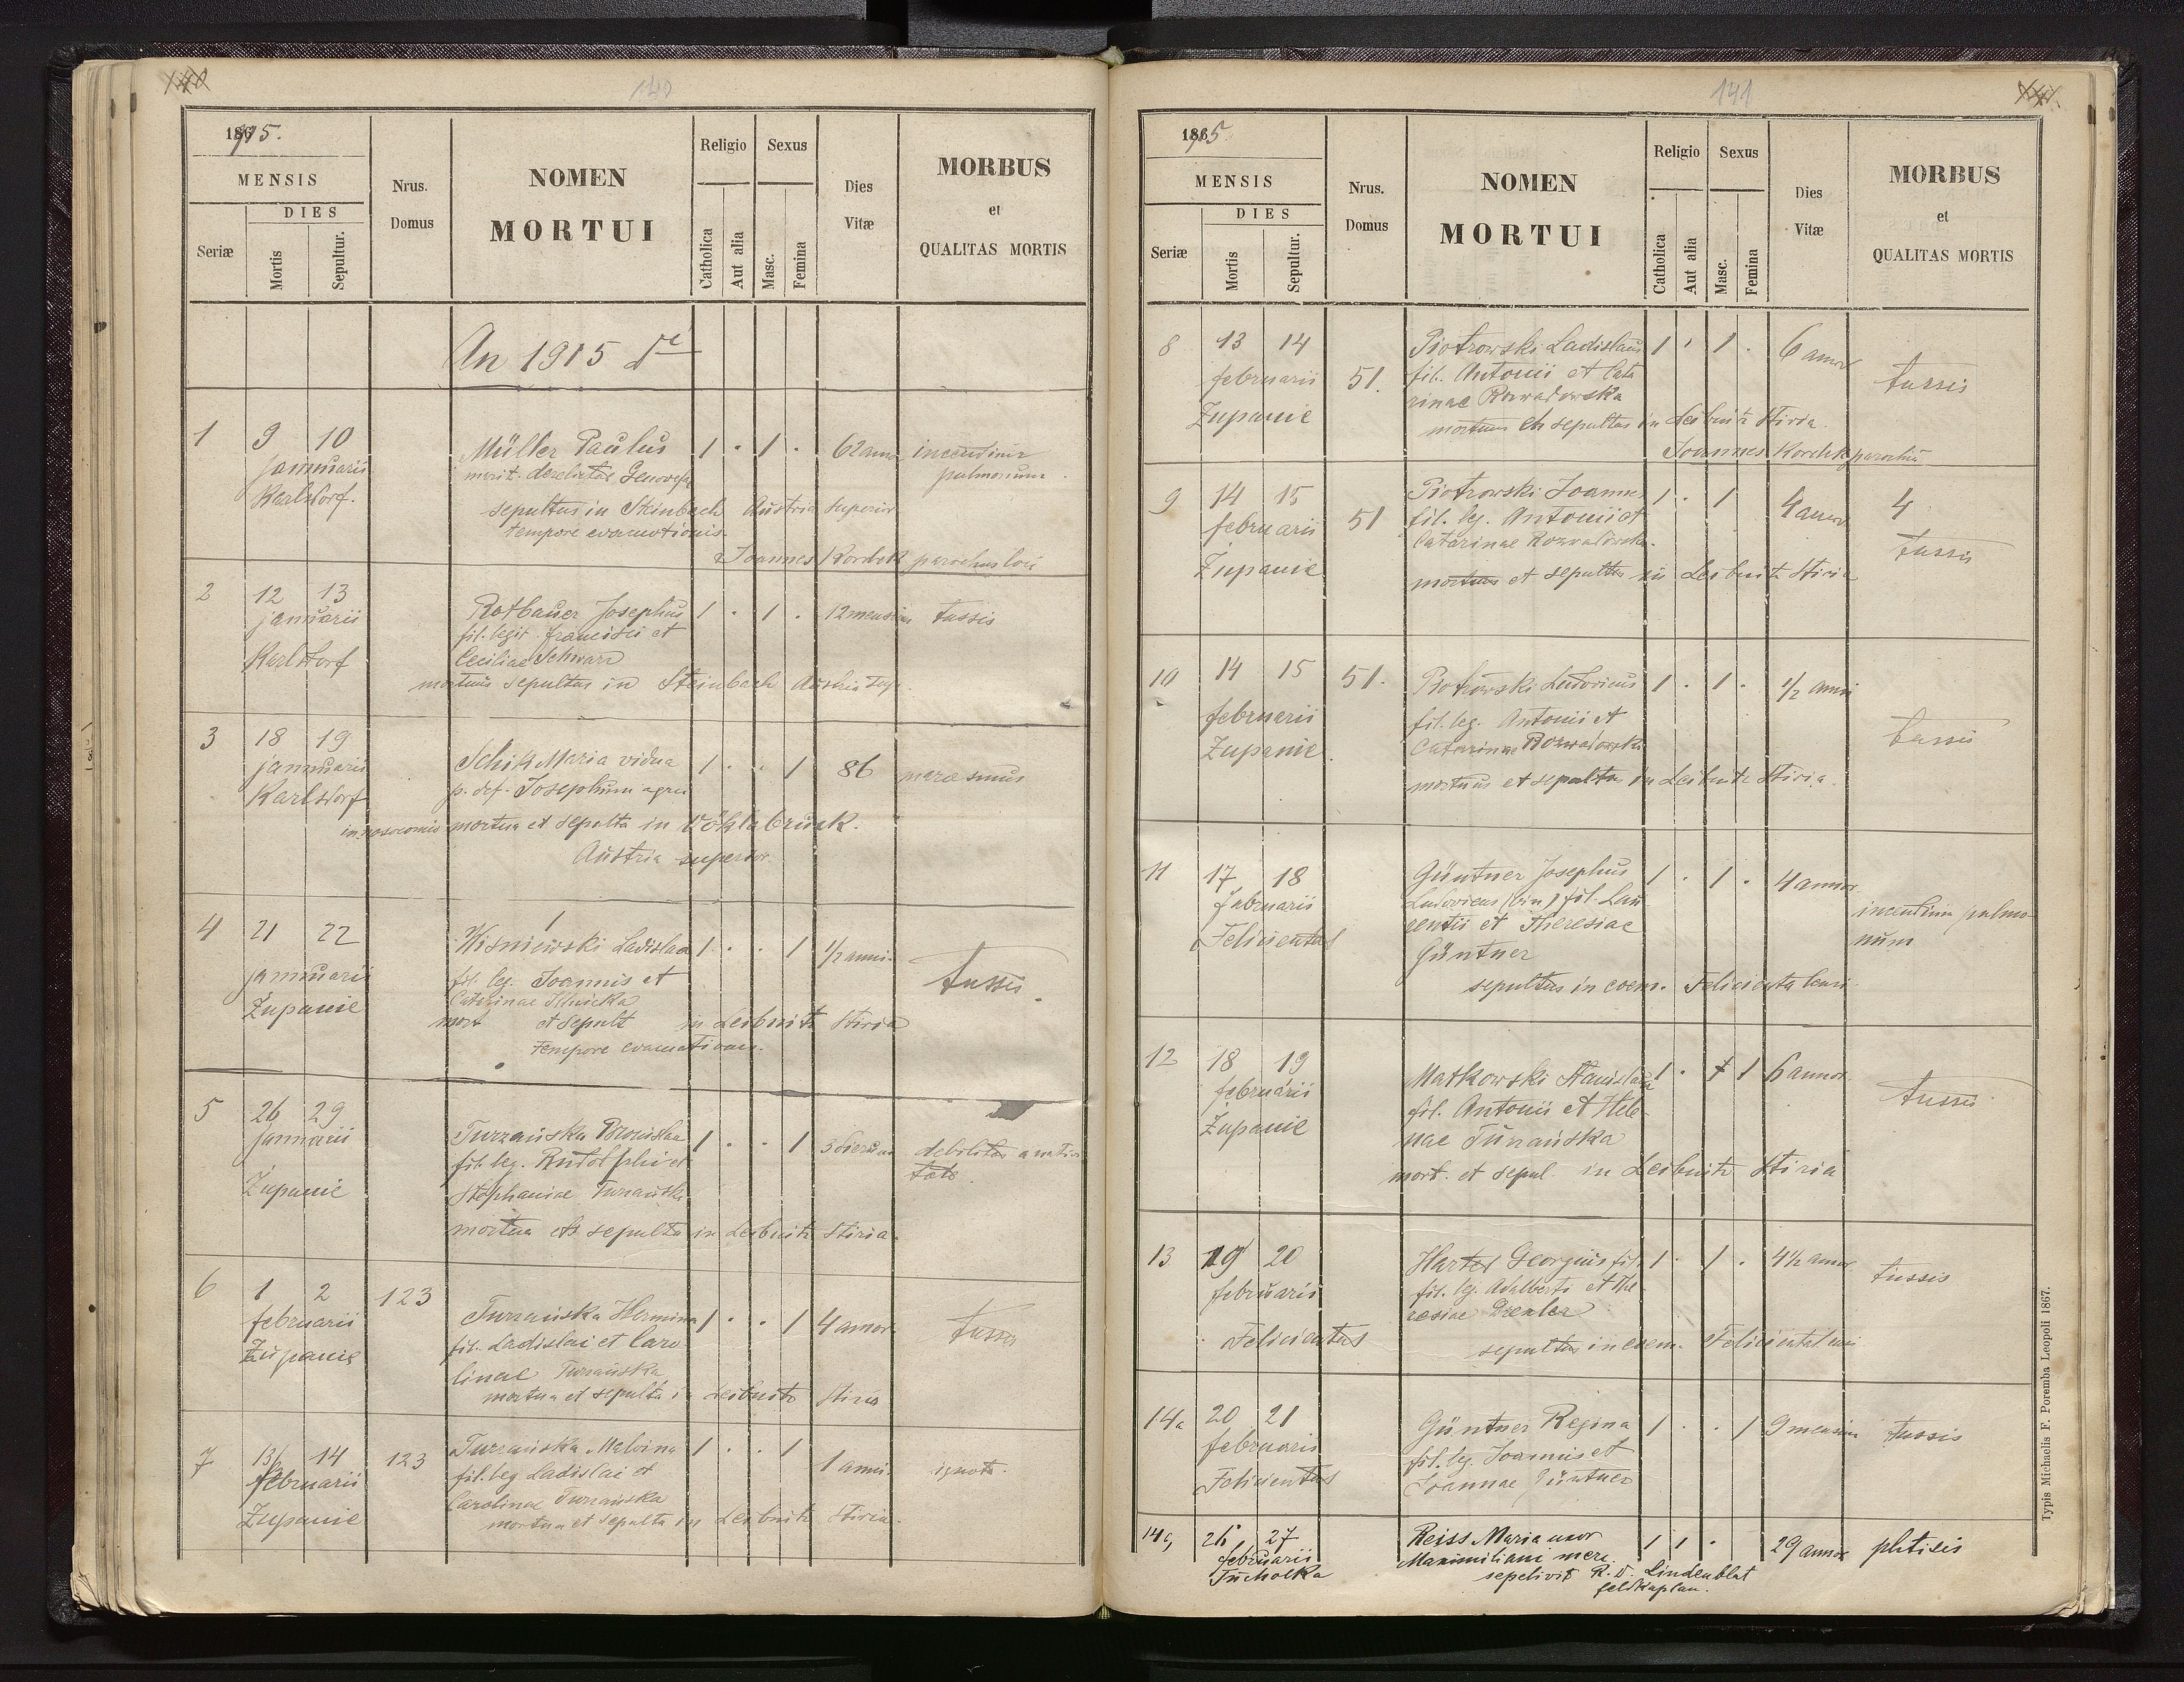 140
1915.
MENSIS
DIES
Seriæ
Mortis
Sepultur.
Nrus.
Domus
NOMEN
MORTUI
Religio
Sexus
Catholica
Aut alia
Masc.
Femina
Dies
Vitæ
MORBUS
et
QUALITAS MORTIS
An 1915
1 9 10 Müller Paulus 1 . 1 . 62 anno incendium
januarii marit. derelictae Genovefa pulmonum.
Karlsdorf.
sepultus in Steinbach Austria superior
tempore evacuationis.
Joannes Kordek parochus loci
2 12 13 Rotbauer Josephus 1 . 1 . 12 mensium tussis
januarii fil. legit. francisci et
Karlsdorf Ceciliae Schwarz
mortuus sepultus in Steinbach Austria sup.
3 18 19 Schik Maria vidua 1 . . 1 86 marasmus
januarii p. def. Josephum
Karlsdorf
in nosocomio mortua et sepulta in Vöklabruck.
Austria superior.
1
4 21 22 Wisniewski Ladislaa 1 . . 1 1/2 anni tussis.
januarii fil. leg. Joannis et
Zupanie Catarinae
mort et sepult in Leibnitz Stiria
tempore evacuationis.
5 26 29 Turzańska Bronislaa 1 . . 1 3 dierum debilitas a nativi
januarii fil. leg. Rudolphi et tate
Zupanie Stephaniae Turzańska
mortua et sepulta in Leibnitz Stiria.
6 1 2 123 Turzańska Hermina 1 . . 1 4 annor tussis
februarii fil. Ladislai et Caro
Zupanie linae Turzańska
mortua et sepulta in Leibnitz Stiria
7 13 14 123 Turzańska Malvina 1 . . 1 1 anni ignota.
februarii fil. leg Ladislai et
Zupanie Carolinae Turzańska
mortua et sepulta in Leibnitz Stiria.
141
1915.
MENSIS
DIES
Seriæ
Mortis
Sepultur.
Nrus.
Domus
NOMEN
MORTUI
Religio
Sexus
Catholica
Aut alia
Masc.
Femina
Dies
Vitæ
MORBUS
et
QUALITAS MORTIS
8 13 14 51. Piotrowski Ladislaus 1 . 1 . 6 annor tussis
februarii fil. Antonii et Cata
Zupanie rinae Rozwadowska
mortuus et sepultus in Leibnitz Stiria.
Joannes Kordek parochus
9 14 15 51 Piotrowski Joannes 1 . 1 4 annor 4
februarii fil. leg. Antonii et tussis
Zupanie Catarinae Rozwadowska.
mortuus et sepultus in Leibnitz Stiria
10 14 15 51. Piotrowski Ludovicus 1 . 1 . 1/2 anni tussis
februarii fil. leg. Antonii et
Zupanie. Catarinae Rozwadowska
mortuus et sepultus in Leibnitz Stiria.
11 17 18 Güntner Josephus 1 . 1 . 4 annor.
februarii Ludovicus (bin.) fil. Lau incendium pulmo
Felicienthal rentii et Theresiae num
Güntner
sepultus in coem. Felicienthalensi.
12 18 19 Matkowski Stanislaa 1 . 1 1 6 annor. tussis
februarii fil. Antonii et Hele
Zupanie nae Turzańska
mort. et sepul. in Leibnitz Stiria
13 19 20 Harter Georgius fil. 1 . 1 . 4 1/2 annor. tussis
februarii fil. leg. Adalberti et The
Felicienthal resiae Drexler
sepultus in coem. Felicienthalensi
14a 20 21 Güntner Regina 1 . . 1 9 mensium tussis
februarii fil. leg. Joannis et
Felicienthal Joannae Güntner
14c, 26 27 Reiss Maria uxor 1 1 . 29 annor phtisis
februarii Maximiliani merc.
Tucholka sepelivit R. D. Lindenblat
feldkaplan.
Typis Michaelis F. Poremba Leopoli 1867.